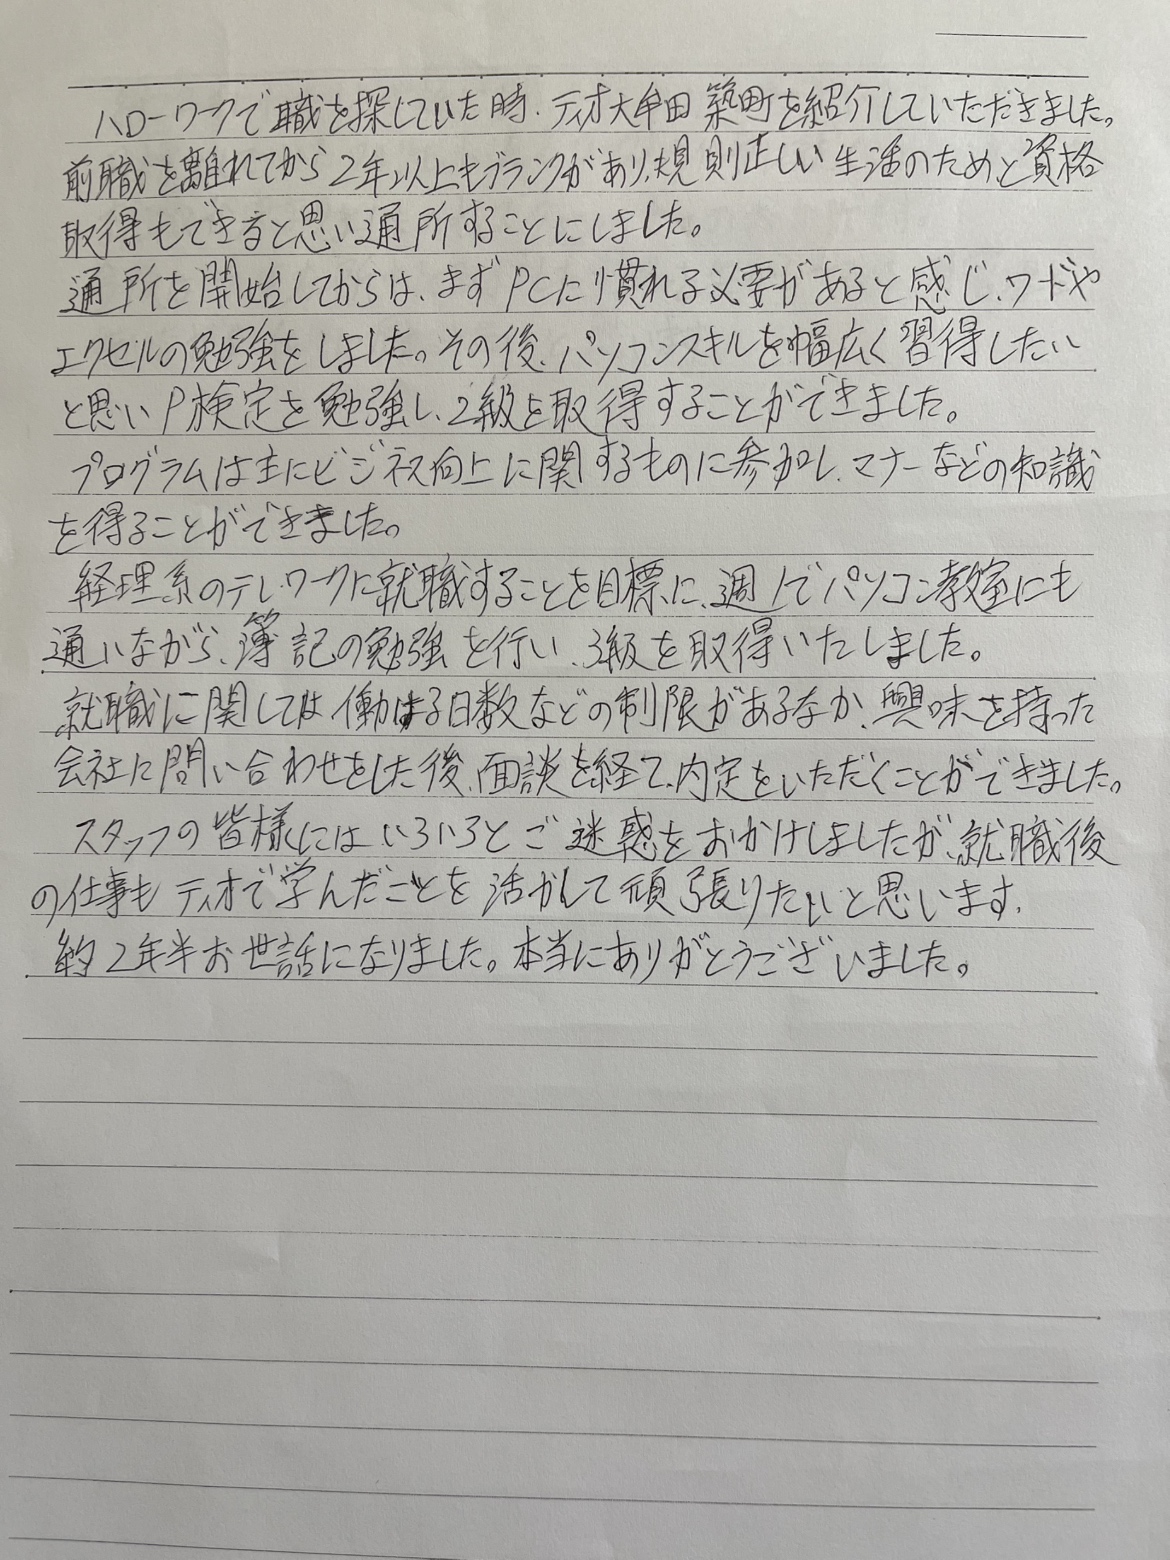 ハローワークで職を探していた時、ティオ大牟田築町を紹介していただきました。
前職を離れてから2年以上もブランクがあり、規則正しい生活のためと資格
取得もできると思い通所することにしました。
通所を開始してからは、まずPCに慣れる必要があると感じ、ワードや
エクセルの勉強をしました。その後、パソコンスキルを幅広く習得したい
と思いP検定を勉強し、2級を取得することができました。
プログラムは主にビジネス向上に関するものに参加し、マナーなどの知識
を得ることができました。
経理系のテレワークに就職することを目標に、週1でパソコン教室にも
通いながら、簿記の勉強を行い、3級を取得いたしました。
就職に関しては働ける日数などの制限があるなか、興味を持った
会社に問い合わせをした後、面談を経て、内定をいただくことができました。
スタッフの皆様にはいろいろとご迷惑をおかけしましたが、就職後
の仕事もティオで学んだことを活かして頑張りたいと思います。
約2年半お世話になりました。本当にありがとうございました。